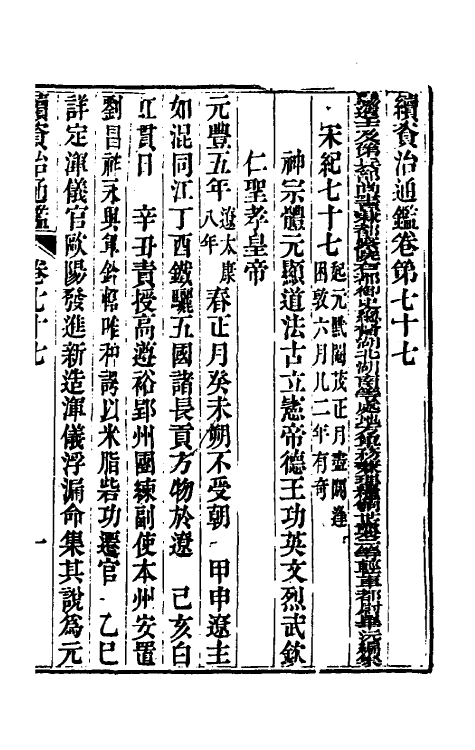 續資治通鑑卷第七十七
宋紀七十七起元黓閹茂正月盡閼逢困敦六月凡二年有奇
神宗體元顯道法古立憲帝德王功英文烈武欽
仁聖孝皇帝
元豐五年遼太康八年春正月癸未朔不受朝 甲申遼主
如混同江丁酉鐵驪五國諸長貢方物於遼 己亥白
虹貫日 辛丑責授高遵裕郢州團練副使本州安置
劉昌祚永興軍鈐轄唯种諤以米脂砦功遷官 乙巳
詳定渾儀官歐陽發進新造渾儀浮漏命集其說爲元
續資治通鑑 卷七十七 一